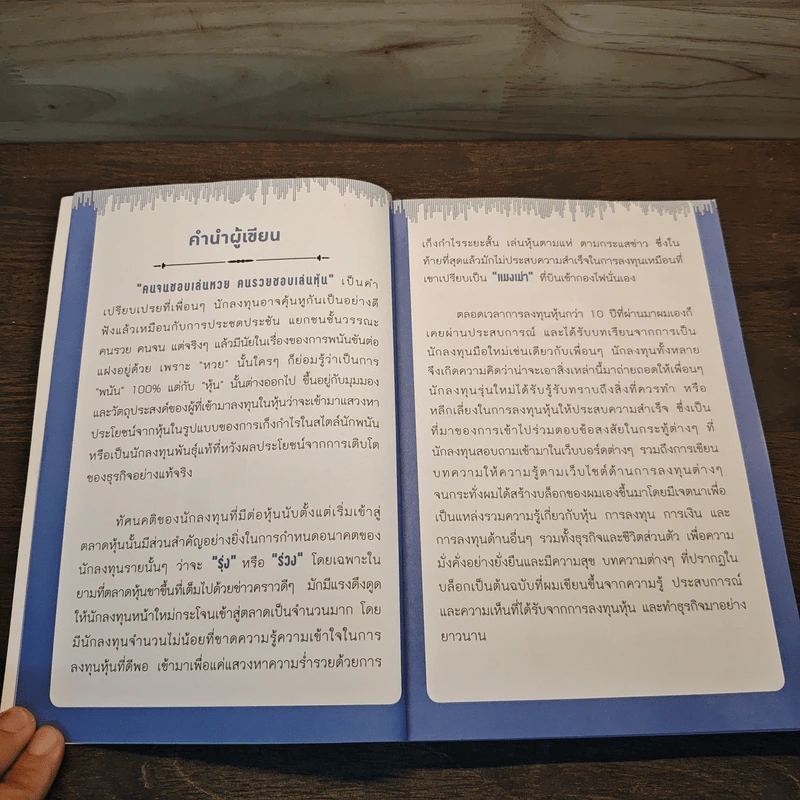 คำนำผู้เขียน
"คนจนชอบเล่นหวย คนรวยชอบเล่นหุ้น" เป็นคำ
เปรียบเปรยที่เพื่อนๆ นักลงทุนอาจคุ้นหูกันเป็นอย่างดี
ฟังแล้วเหมือนกับการประชดประชัน แยกชนชั้นวรรณะ
คนรวย คนจน แต่จริงๆ แล้วมีนัยในเรื่องของการพนันขันต่อ
แฝงอยู่ด้วย เพราะ "หวย" นั้นใครๆ ก็ย่อมรู้ว่าเป็นการ
"พนัน" 100% แต่กับ "หุ้น" นั้นต่างออกไป ขึ้นอยู่กับมุมมอง
และวัตถุประสงค์ของผู้ที่เข้ามาลงทุนในหุ้นว่าจะเข้ามาแสวงหา
ประโยชน์จากหุ้นในรูปแบบของการเก็งกำไรในสไตล์นักพนัน
หรือเป็นนักลงทุนพันธุ์แท้ที่หวังผลประโยชน์จากการเติบโต
ของธุรกิจอย่างแท้จริง
ทัศนคติของนักลงทุนที่มีต่อหุ้นนับตั้งแต่เริ่มเข้าสู่
ตลาดหุ้นนั้นมีส่วนสำคัญอย่างยิ่งในการกำหนดอนาคตของ
นักลงทุนรายนั้นๆ ว่าจะ "รุ่ง" หรือ "ร่วง" โดยเฉพาะใน
ยามที่ตลาดหุ้นขาขึ้นที่เต็มไปด้วยข่าวคราวดีๆ มักมีแรงดึงดูด
ให้นักลงทุนหน้าใหม่กระโจนเข้าสู่ตลาดเป็นจำนวนมาก โดย
มีนักลงทุนจำนวนไม่น้อยที่ขาดความรู้ความเข้าใจในการ
ลงทุนหุ้นที่ดีพอ เข้ามาเพื่อแค่แสวงหาความร่ำรวยด้วยการ
เก็งกำไรระยะสั้น เล่นหุ้นตามแห่ ตามกระแสข่าว ซึ่งใน
ท้ายที่สุดแล้วมักไม่ประสบความสำเร็จในการลงทุนเหมือนที่
เขาเปรียบเป็น "แมงเม่า" ที่บินเข้ากองไฟนั่นเอง
ตลอดเวลาการลงทุนหุ้นกว่า 10 ปีที่ผ่านมาผมเองก็
เคยผ่านประสบการณ์ และได้รับบทเรียนจากการเป็น
นักลงทุนมือใหม่เช่นเดียวกับเพื่อนๆ นักลงทุนทั้งหลาย
จึงเกิดความคิดว่าน่าจะเอาสิ่งเหล่านี้มาถ่ายถอดให้เพื่อนๆ
นักลงทุนรุ่นใหม่ได้รับรู้รับทราบถึงสิ่งที่ควรทำ หรือ
หลีกเลี่ยงในการลงทุนหุ้นให้ประสบความสำเร็จ ซึ่งเป็น
ที่มาของการเข้าไปร่วมตอบข้อสงสัยในกระทู้ต่างๆ ที่
นักลงทุนสอบถามเข้ามาในเว็บบอร์ดต่างๆ รวมถึงการเขียน
บทความให้ความรู้ตามเว็บไซต์ด้านการลงทุนต่างๆ
จนกระทั่งผมได้สร้างบล็อกของผมเองขึ้นมาโดยมีเจตนาเพื่อ
เป็นแหล่งรวมความรู้เกี่ยวกับหุ้น การลงทุน การเงิน และ
การลงทุนด้านอื่นๆ รวมทั้งธุรกิจและชีวิตส่วนตัว เพื่อความ
มั่งคั่งอย่างยั่งยืนและมีความสุข บทความต่างๆ ที่ปรากฏใน
บล็อกเป็นต้นฉบับที่ผมเขียนขึ้นจากความรู้ ประสบการณ์
และความเห็นที่ได้รับจากการลงทุนหุ้น และทำธุรกิจมาอย่าง
ยาวนาน